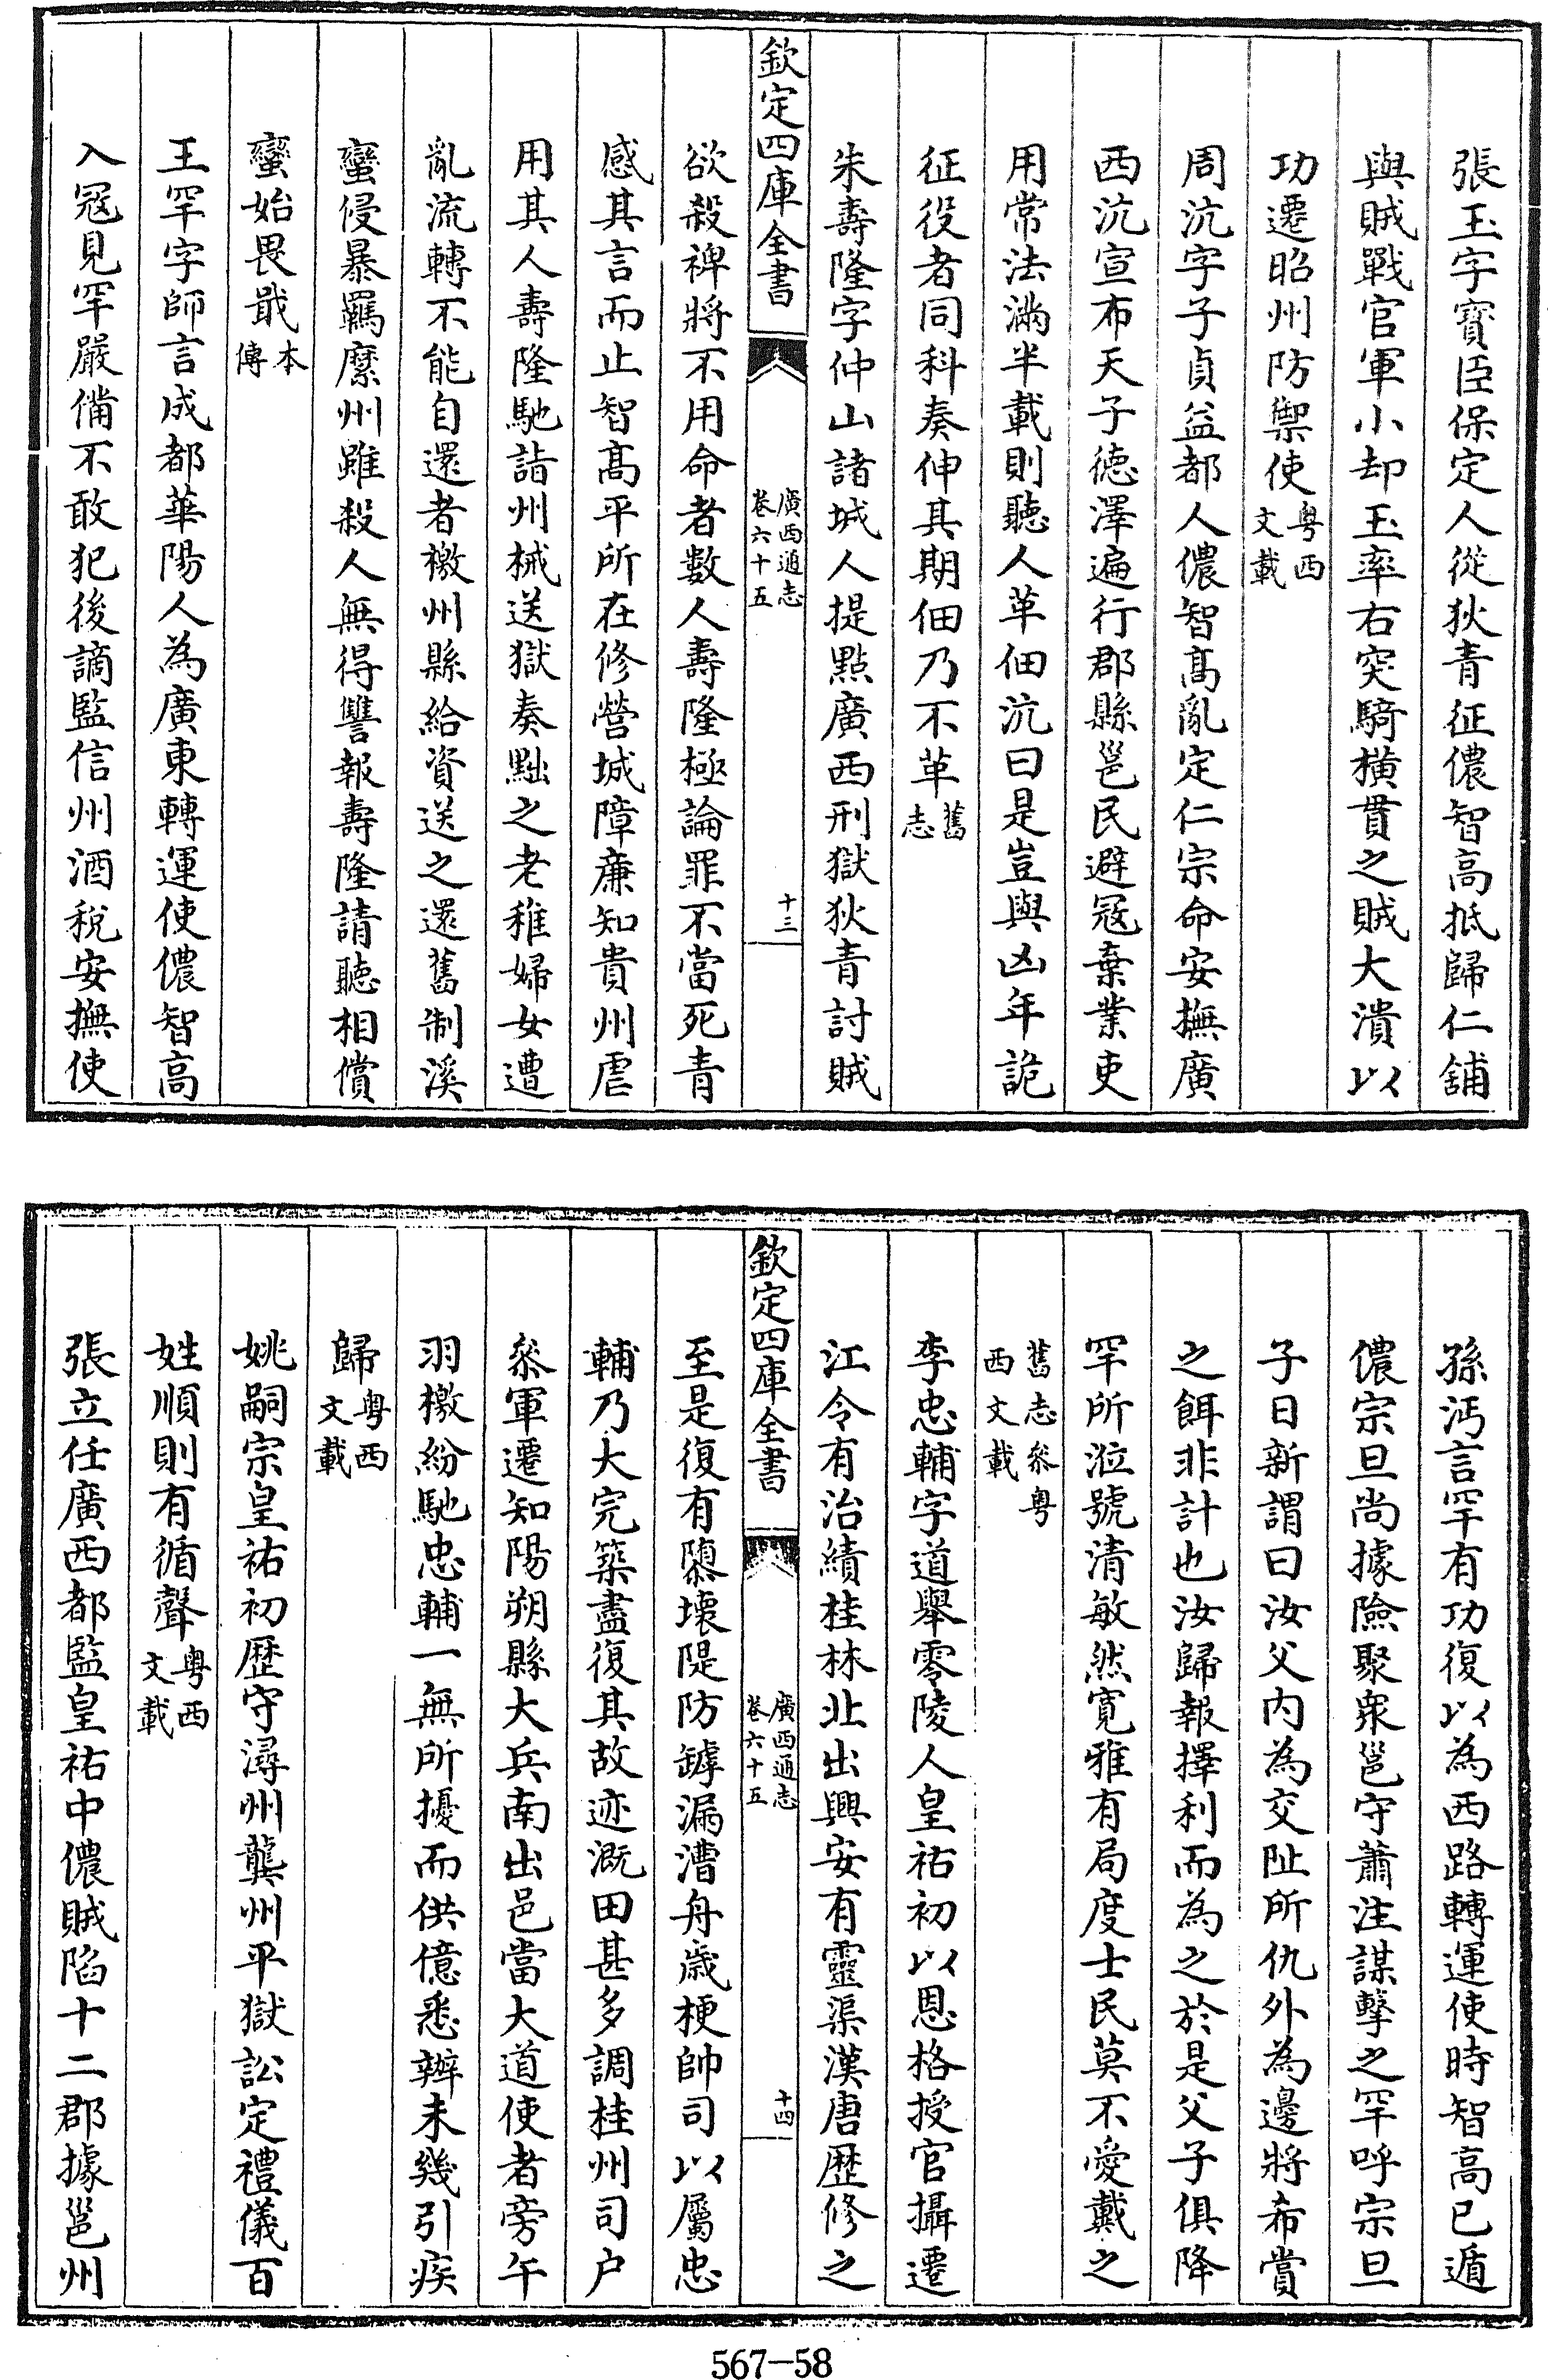 張玉字寳臣保定人從狄青征儂智高抵歸仁舖
與賊戰官軍小却玉率右突騎橫貫之賊大潰以
功遷昭州防禦使粤西文載
周沆字子貞益都人儂智髙亂定仁宗命安撫廣
西沆宣布天子徳澤遍行郡縣邕民避冦棄業吏
用常法滿半載則聽人革佃沆曰是豈與凶年詭
征役者同科奏伸其期佃乃不革舊志
朱壽隆字仲山諸城人提點廣西刑獄狄青討賊
欽定四庫全書 廣西通志卷六十五 十三
欲殺裨將不用命者數人壽隆極論罪不當死青
感其言而止智髙平所在修營城障亷知貴州虐
用其人壽隆馳詣州械送獄奏黜之老稚婦女遭
亂流轉不能自還者檄州縣給資送之還舊制溪
蠻侵暴羈縻州雖殺人無得讐報壽隆請聽相償
蠻始畏戢本傳
王罕字師言成都華陽人為廣東轉運使儂智高
入冦見罕嚴備不敢犯後謫監信州酒稅安撫使
孫沔言罕有功復以為西路轉運使時智高已遁
儂宗旦尚據險聚衆邕守蕭注謀擊之罕呼宗旦
子日新謂曰汝父内為交阯所仇外為邊將希賞
之餌非計也汝歸報擇利而為之於是父子俱降
罕所涖號清敏然寛雅有局度士民莫不愛戴之
舊志叅粤西文載
李忠輔字道舉零陵人皇祐初以恩格授官攝遷
江令有治績桂林北出興安有靈渠漢唐歴修之
欽定四庫全書 廣西通志卷六十五 十四
至是復有隳壊隄防罅漏漕舟歲梗帥司以屬忠
輔乃大完築盡復其故迹溉田甚多調桂州司户
叅軍遷知陽朔縣大兵南出邑當大道使者旁午
羽檄紛馳忠輔一無所擾而供億悉辦未幾引疾
歸粤西文載
姚嗣宗皇祐初歴守潯州龔州平獄訟定禮儀百
姓順則有循聲粤西文載
張立任廣西都監皇祐中儂賊陷十二郡據邕州
567-58